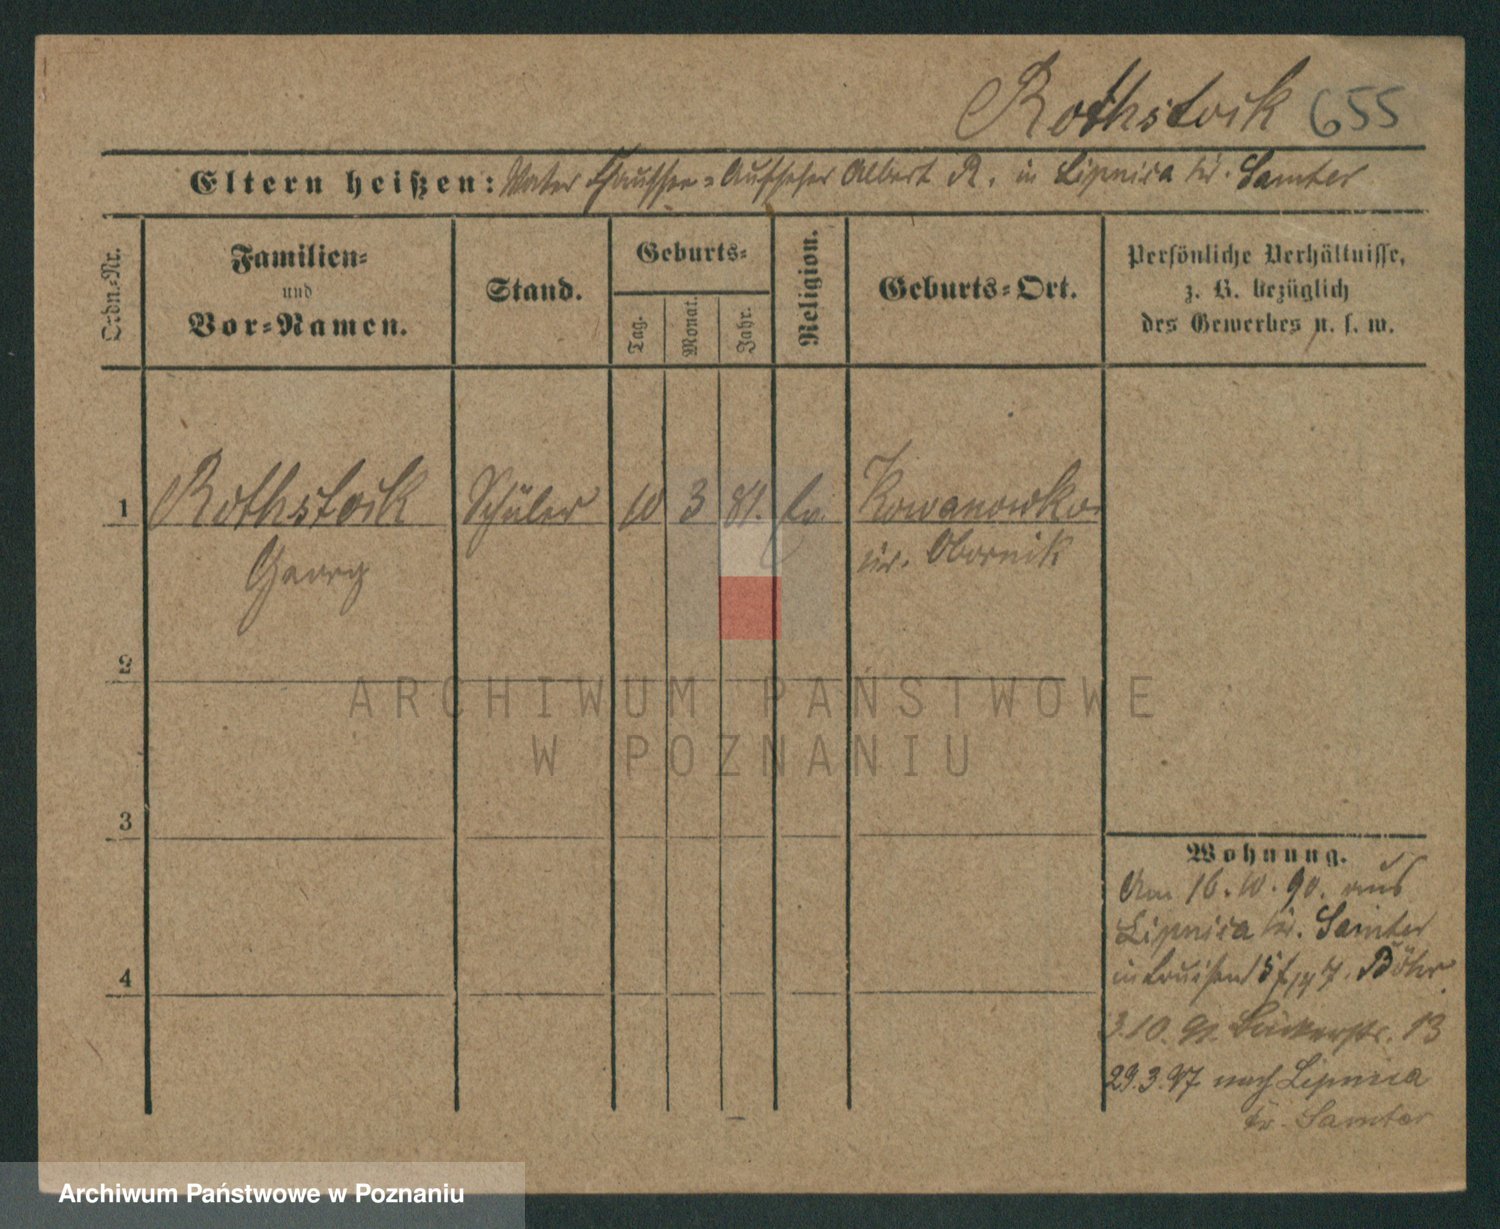 Rothstock 655
Eltern heißen: Vater Chaussee-Aufseher Albert R. in Lipnica Kr. Samter
Ordn.-Nr.
Familien-
und
Vor-Namen.
Stand.
Geburts-
Tag.
Monat.
Jahr.
Religion.
Geburts-Ort.
Persönliche Verhältnisse,
z. B. bezüglich
des Gewerbes u. s. w.
1 Rothstock Schüler 10 3 81. Ev. Kowanowko
Georg Kr. Obornik
2
3
4
Wohnung.
Am 16.10.90. aus
Lipnica Kr. Samter
in 5 Böhr.
3.10. Bäckerstr. 13
29.3.97 nach Lipnica
Kr. Samter
ARCHIWUM PAŃSTWOWE
W POZNANIU
Archiwum Państwowe w Poznaniu